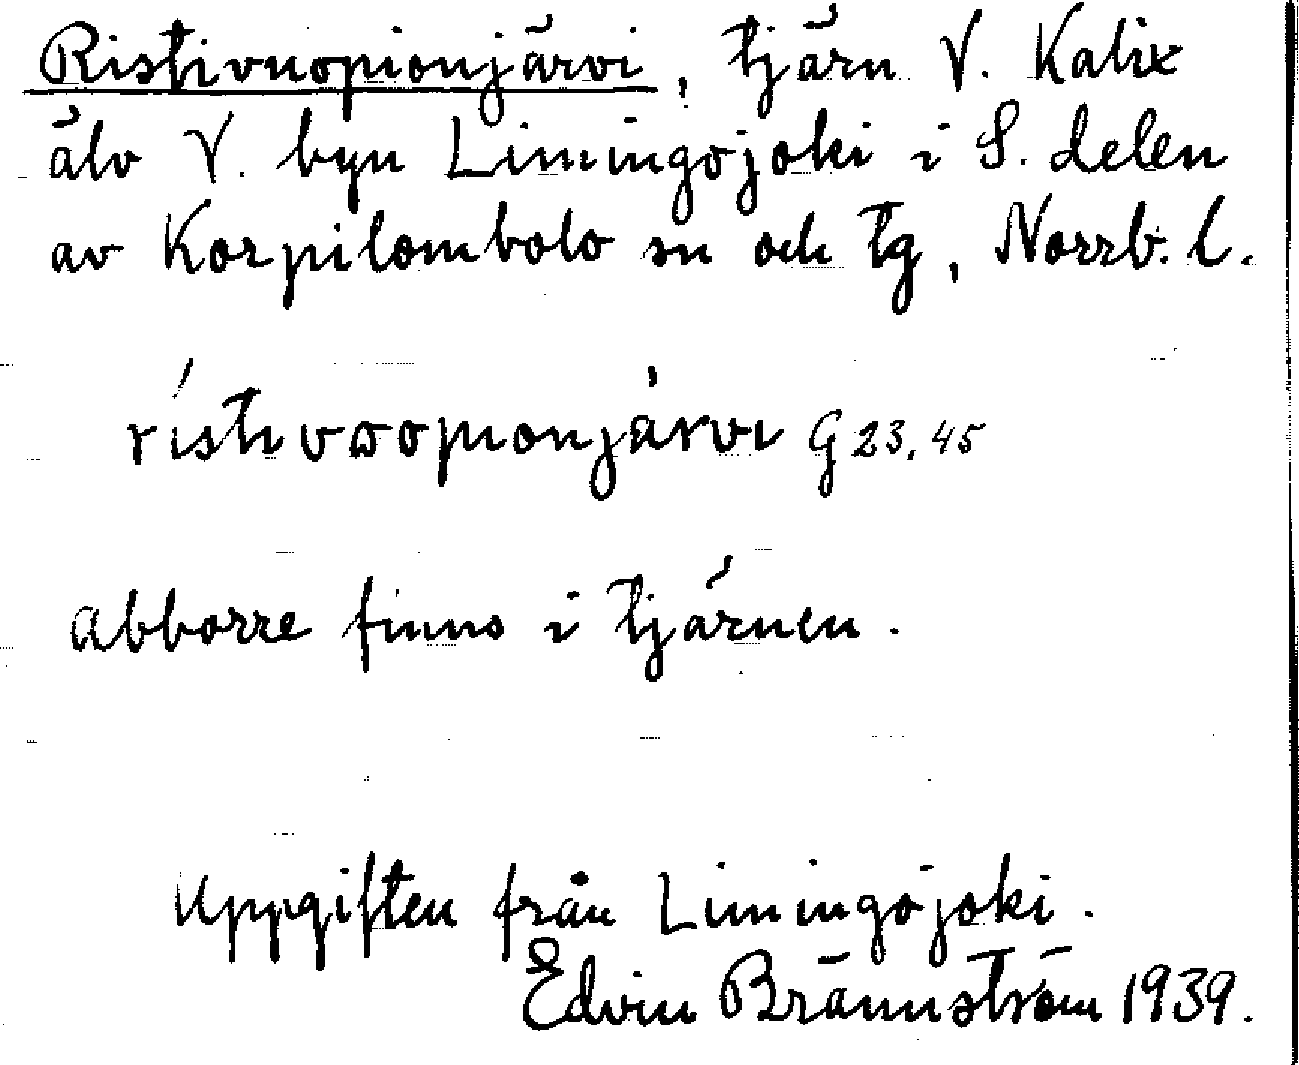 Ristivuopionjärvi, tjärn V. Kalix
älv V. byn Limingojoki i S. delen
av Korpilombolo sn och tg, Norrb. l.
rísti vωopionjàrvi G 23,45
abborre finns i tjärnen.
Uppgiften från Limingojoki.
Edvin Brännström 1939.